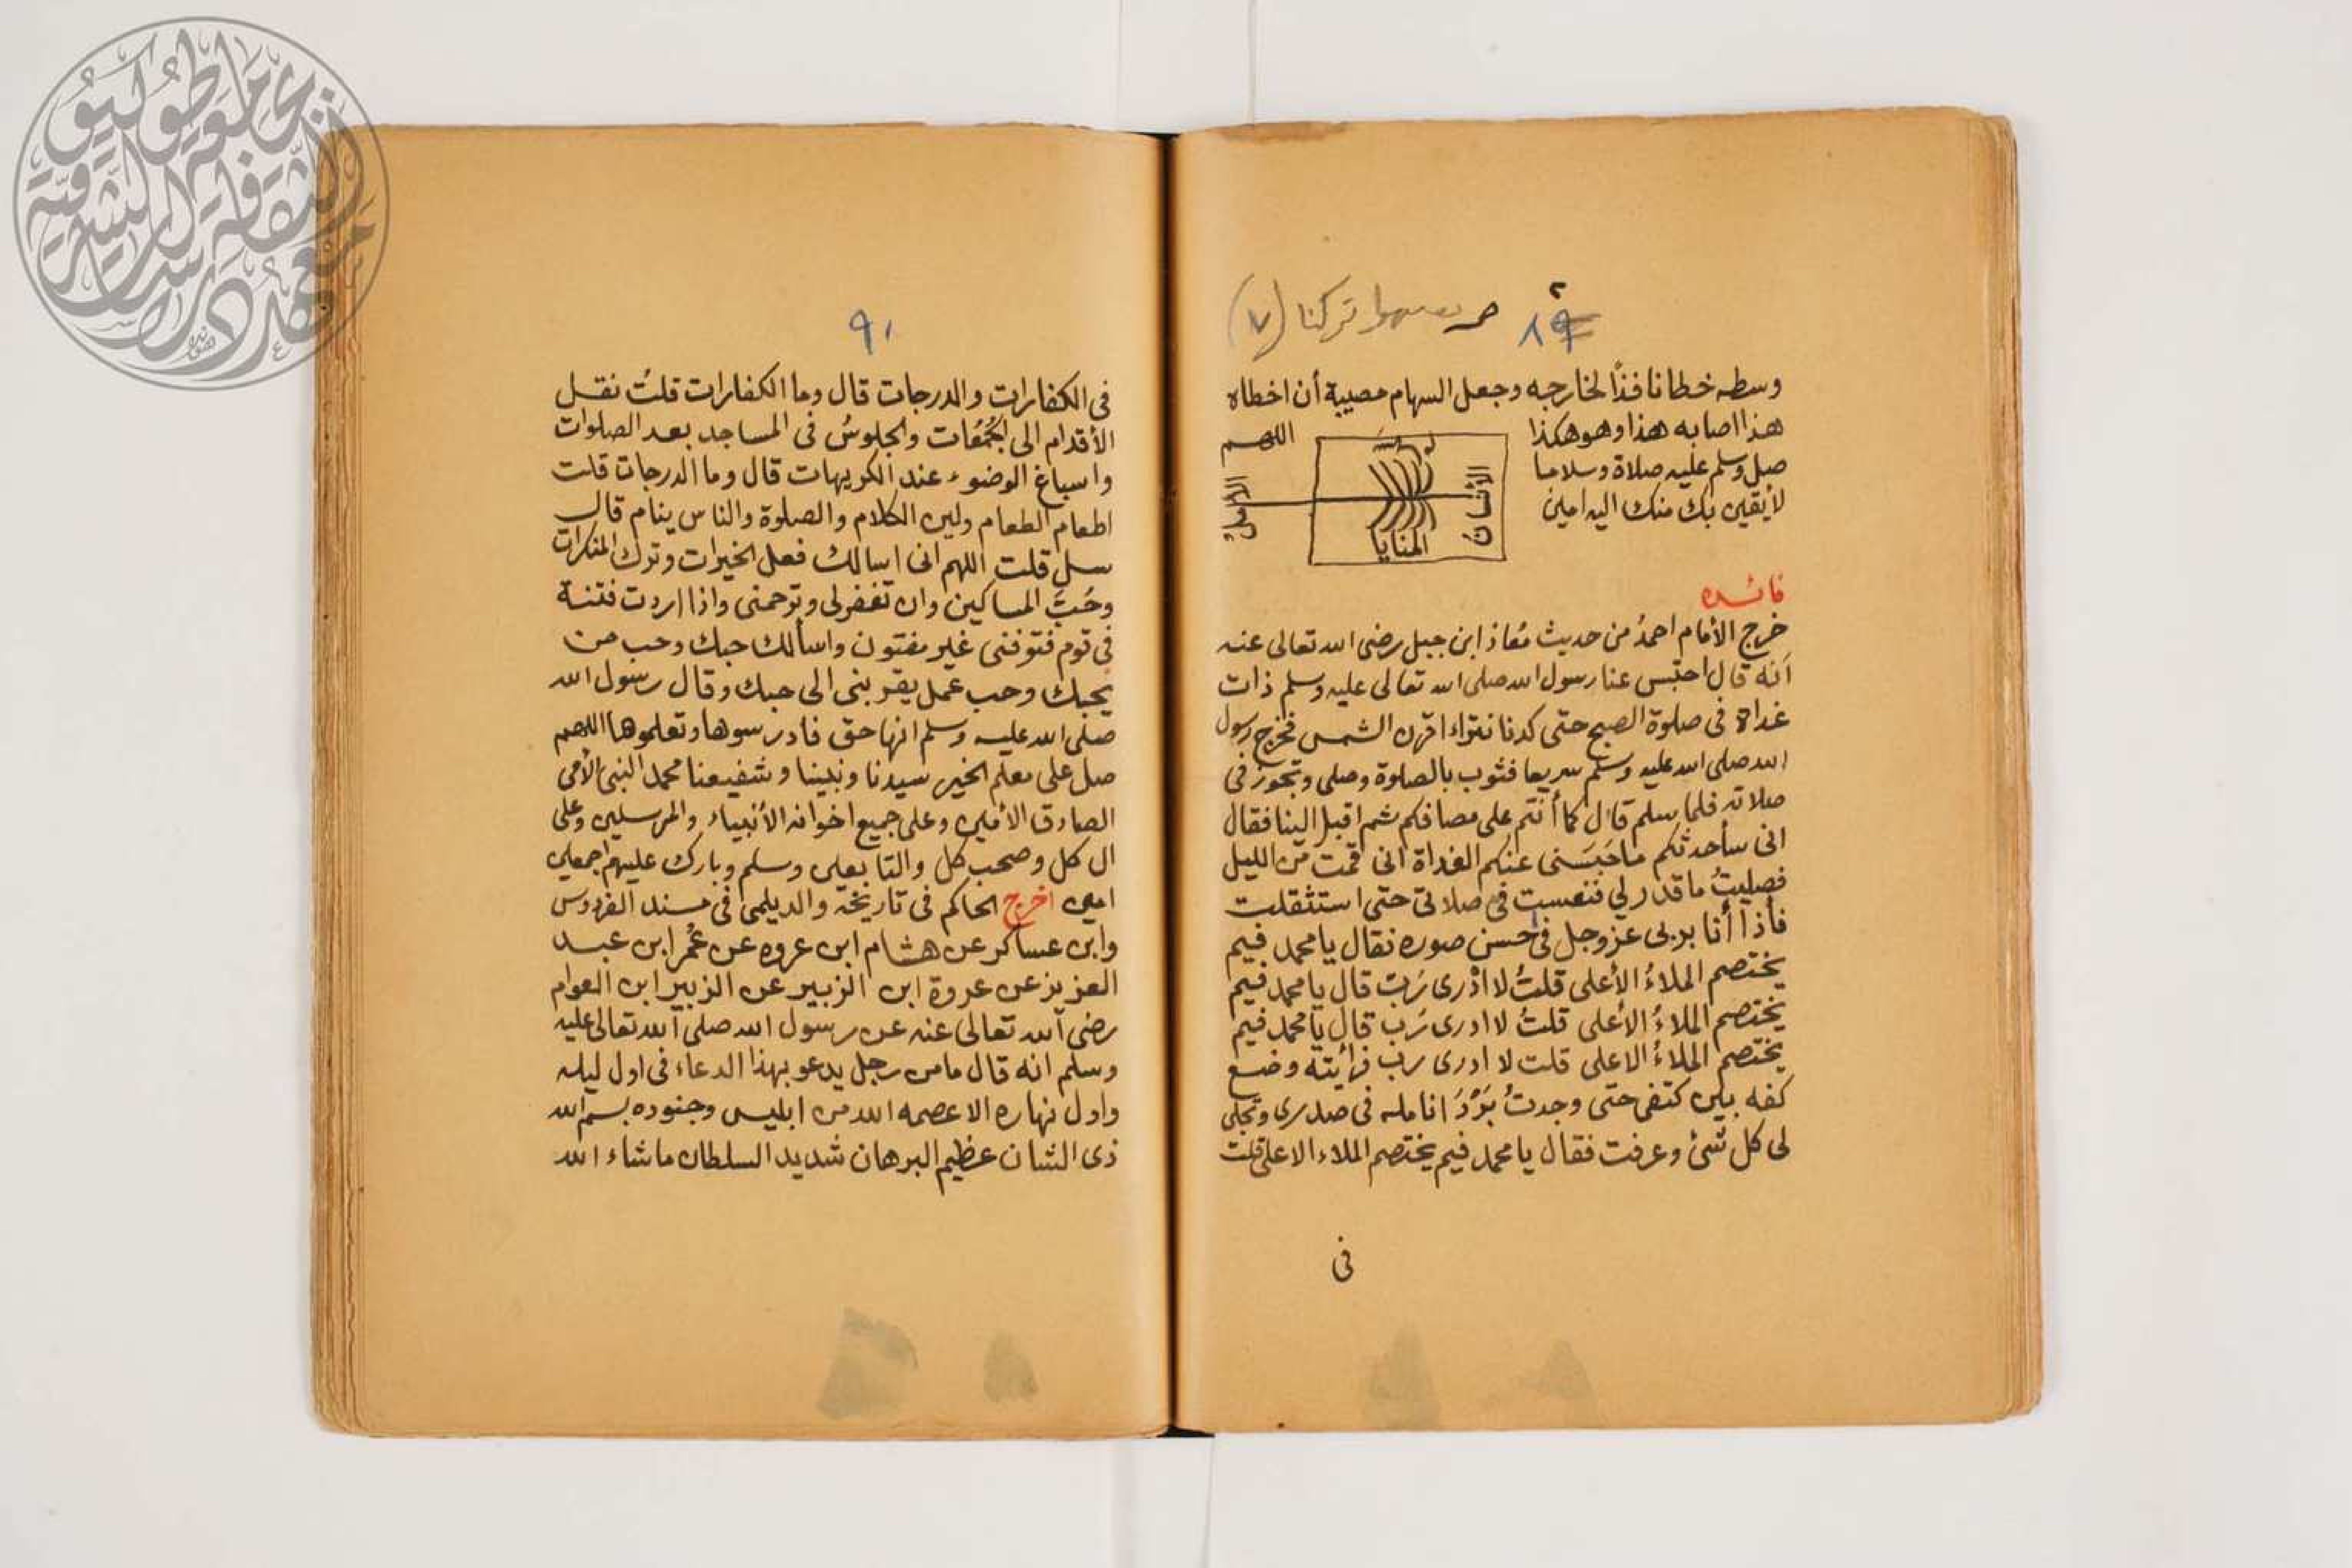 تركنا (٧)
٨٩
وسطه خطا نافذًا لخارجه وجعل السهام مصيبة أن اخطاه
هذا اصابه هذا وهو هكذا
اللهم
صل وسلم عليه صلاة وسلاما
لايقين بك منك اليه امين
الأنسان
المنايا
الامل
فائده
خرج الأمام احمدُ من حديث مُعاذ ابن جبل رضى الله تعالى عنه
أنه قال احتبس عنا رسول الله صلى الله تعالى عليه وسلم ذات
غداة فى صلوة الصبح حتى كدنا نتراءا قرن الشمس فخرج رسول
الله صلى الله عليه وسلم سريعا فثوب بالصلوة وصلى وتجوز فى
صلاته فلما سلم قال كما أنتم على مصافكم ثم اقبل الينا فقال
انى سأحدثكم ما حَبَسَنى عنكم الغداة انى قمت من الليل
فصليتُ ما قدر لي فنعست فى صلاتى حتى استثقلت
فأذا أنا بربى عز وجل فى احسن صوره فقال يا محمد فيم
يختصم الملاءُ الأعلى قلتُ لا ادْرى رَب قال يا محمد فيم
يختصم الملاءُ الأعلى قلتُ لا ادرى رَب قال يا محمد فيم
يختصم الملاءُ الاعلى قلت لا ادرى رب فرأيته وضع
كفه بين كتفى حتى وجدتُ بَرْدَ انامله فى صدرى وتجلى
لى كل شئ وعرفت فقال يا محمد فيم يختصم الملاء الاعلى قلت
فى
٩٠
فى الكفارات والدرجات قال وما الكفارات قلتُ نقل
الأقدام الى الجُمُعَات والجلوسُ فى المساجد بعد الصلوات
واسباغ الوضوء عند الكريهات قال وما الدرجات قلت
اطعام الطعام ولين الكلام والصلوة والناس ينام قال
سل قلت اللهم انى اسالك فعل الخيرات وترك المنكرات
وحُبَّ المساكين وان تغفر لى وترحمنى واذا اردت فتنة
فى قوم فتوفنى غير مفتون واسألك حبك وحب من
يحبك وحب عمل يقربنى الى حبك وقال رسول الله
صلى الله عليه وسلم انها حق فادرسوها وتعلموها اللهم
صل على معلم الخير سيدنا ونبينا وشفيعنا محمد النبى الأمى
الصادق الأمين وعلى جميع اخوانه الأنبياء والمرسلين وعلى
ال كل وصحب كل والتابعين وسلم وبارك عليهم اجمعين
امين اخرج الحاكم فى تاريخه والديلمى فى مسند الفردوس
وابن عساكر عن هشام ابن عروه عن عُمر ابن عبد
العزيز عن عروة ابن الزبير عن الزبير ابن العوام
رضى الله تعالى عنه عن رسول الله صلى الله تعالى عليه
وسلم انه قال ما من رجل يدعو بهذا الدعاء فى اول ليله
واول نهاره الا عصمه الله من ابليس وجنوده بسم الله
ذى الشان عظيم البرهان شديد السلطان ما شاء الله